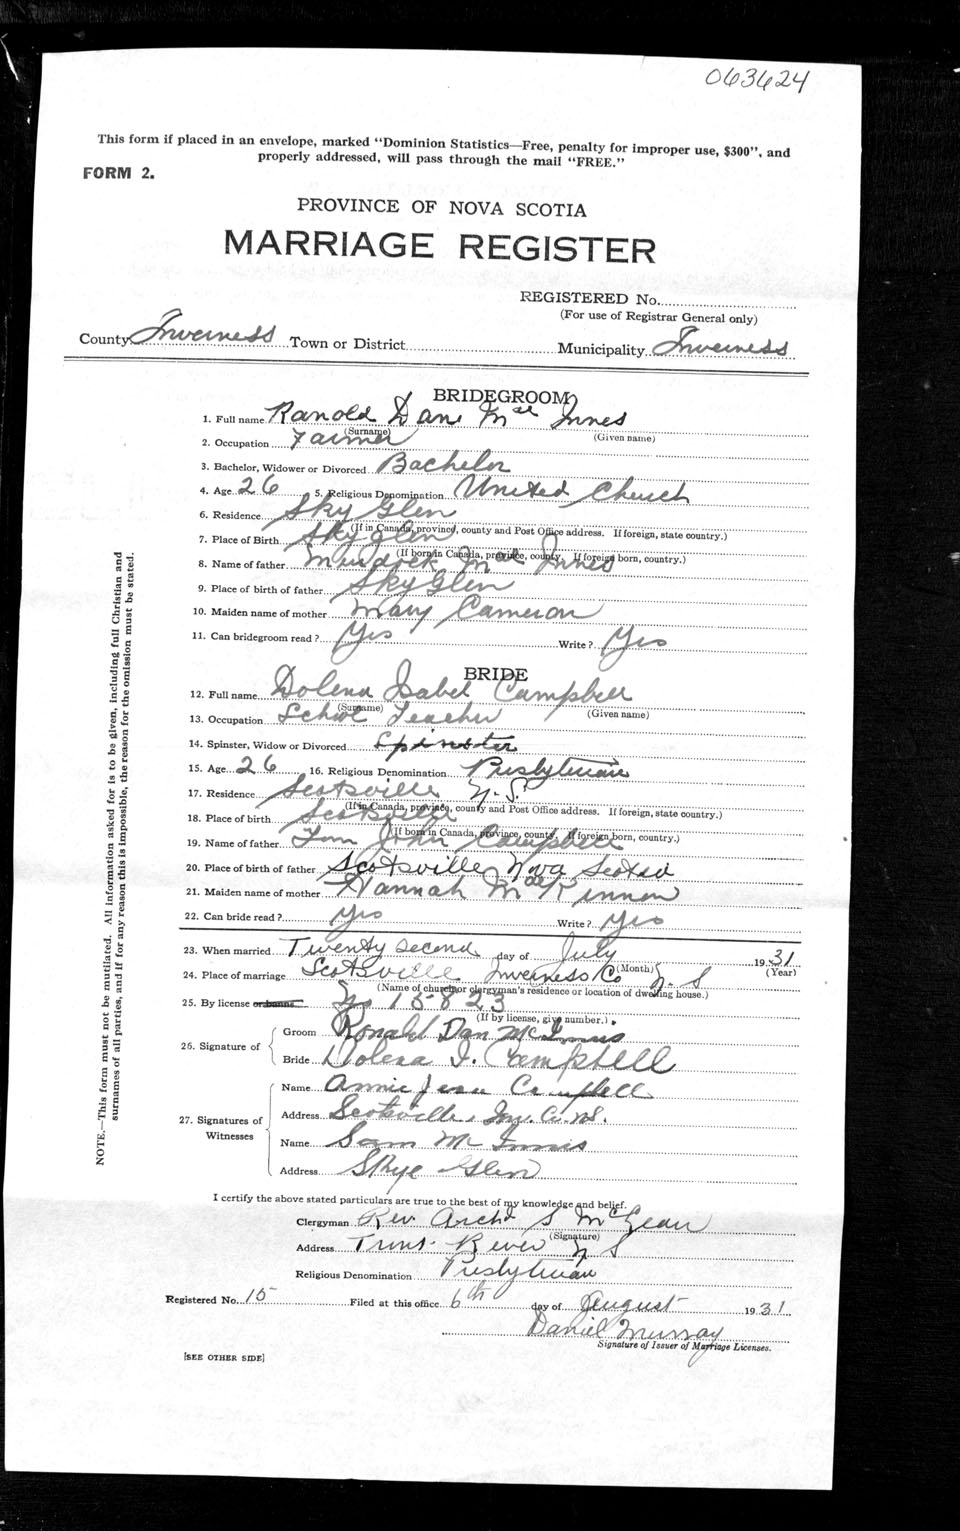 063624
This form if placed in an envelope, marked "Dominion Statistics—Free, penalty for improper use, $300", and
properly addressed, will pass through the mail "FREE."
FORM 2.
PROVINCE OF NOVA SCOTIA
MARRIAGE REGISTER
REGISTERED No.
(For use of Registrar General only)
County Inverness Town or District Municipality Inverness
BRIDEGROOM
1. Full name Ranold Dan Mac Innes
(Surname) (Given name)
2. Occupation Farmer
3. Bachelor, Widower or Divorced Bachelor
4. Age 26 5. Religious Denomination United Church
6. Residence Sky Glen
(If in Canada, province, county and Post Office address. If foreign, state country.)
7. Place of Birth Sky Glen
(If born in Canada, province, county. If foreign born, country.)
8. Name of father Mac Innes
9. Place of birth of father Sky Glen
10. Maiden name of mother Mary Cameron
11. Can bridegroom read? Yes Write? Yes
BRIDE
12. Full name Dolena Isabel Campbell
(Surname) (Given name)
13. Occupation School Teacher
14. Spinster, Widow or Divorced Spinster
15. Age 26 16. Religious Denomination Presbyterian
17. Residence Scotsville N.S.
(If in Canada, province, county and Post Office address. If foreign, state country.)
18. Place of birth Scotsville
(If born in Canada, province, county. If foreign born, country.)
19. Name of father John Campbell
20. Place of birth of father Scotsville Nova Scotia
21. Maiden name of mother Hannah MacKinnon
22. Can bride read? Yes Write? Yes
23. When married Twenty second day of July 1931
(Month) (Year)
24. Place of marriage Scotsville Inverness Co N.S
(Name of church or clergyman's residence or location of dwelling house.)
25. By license or banns No 15823
(If by license, give number.)
26. Signature of
Groom Ronald Dan McInnis
Bride Dolena I. Campbell
27. Signatures of
Witnesses
Name Annie Jean Campbell
Address Scotsville, Inv. Co. N.S.
Name Sam McInnis
Address Skye Glen
I certify the above stated particulars are true to the best of my knowledge and belief.
Clergyman Rev Archd S McLean
(Signature)
Address River N S
Religious Denomination Presbyterian
Registered No. 15 Filed at this office 6th day of August 1931
Daniel Murray
Signature of Issuer of Marriage Licenses.
[SEE OTHER SIDE]
NOTE.—This form must not be mutilated. All information asked for is to be given, including full Christian and
surnames of all parties, and if for any reason this is impossible, the reason for the omission must be stated.